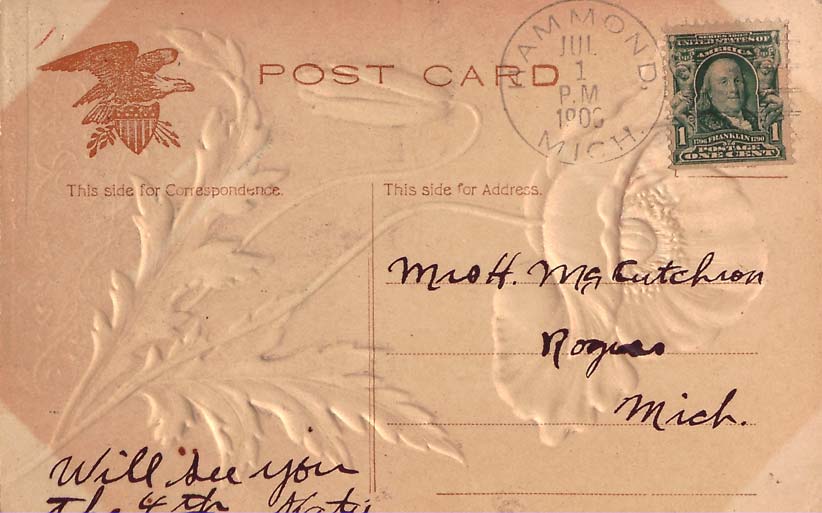 POST CARD
HAMMOND,
JUL
1
P.M
1906
MICH.
SERIES 1902
UNITED STATES OF
AMERICA
1 1706 FRANKLIN 1790 1
POSTAGE
ONE CENT
This side for Correspondence.
This side for Address.
Mrs H. McCutcheon
Rogers
Mich.
Will see you
The 4th Katy